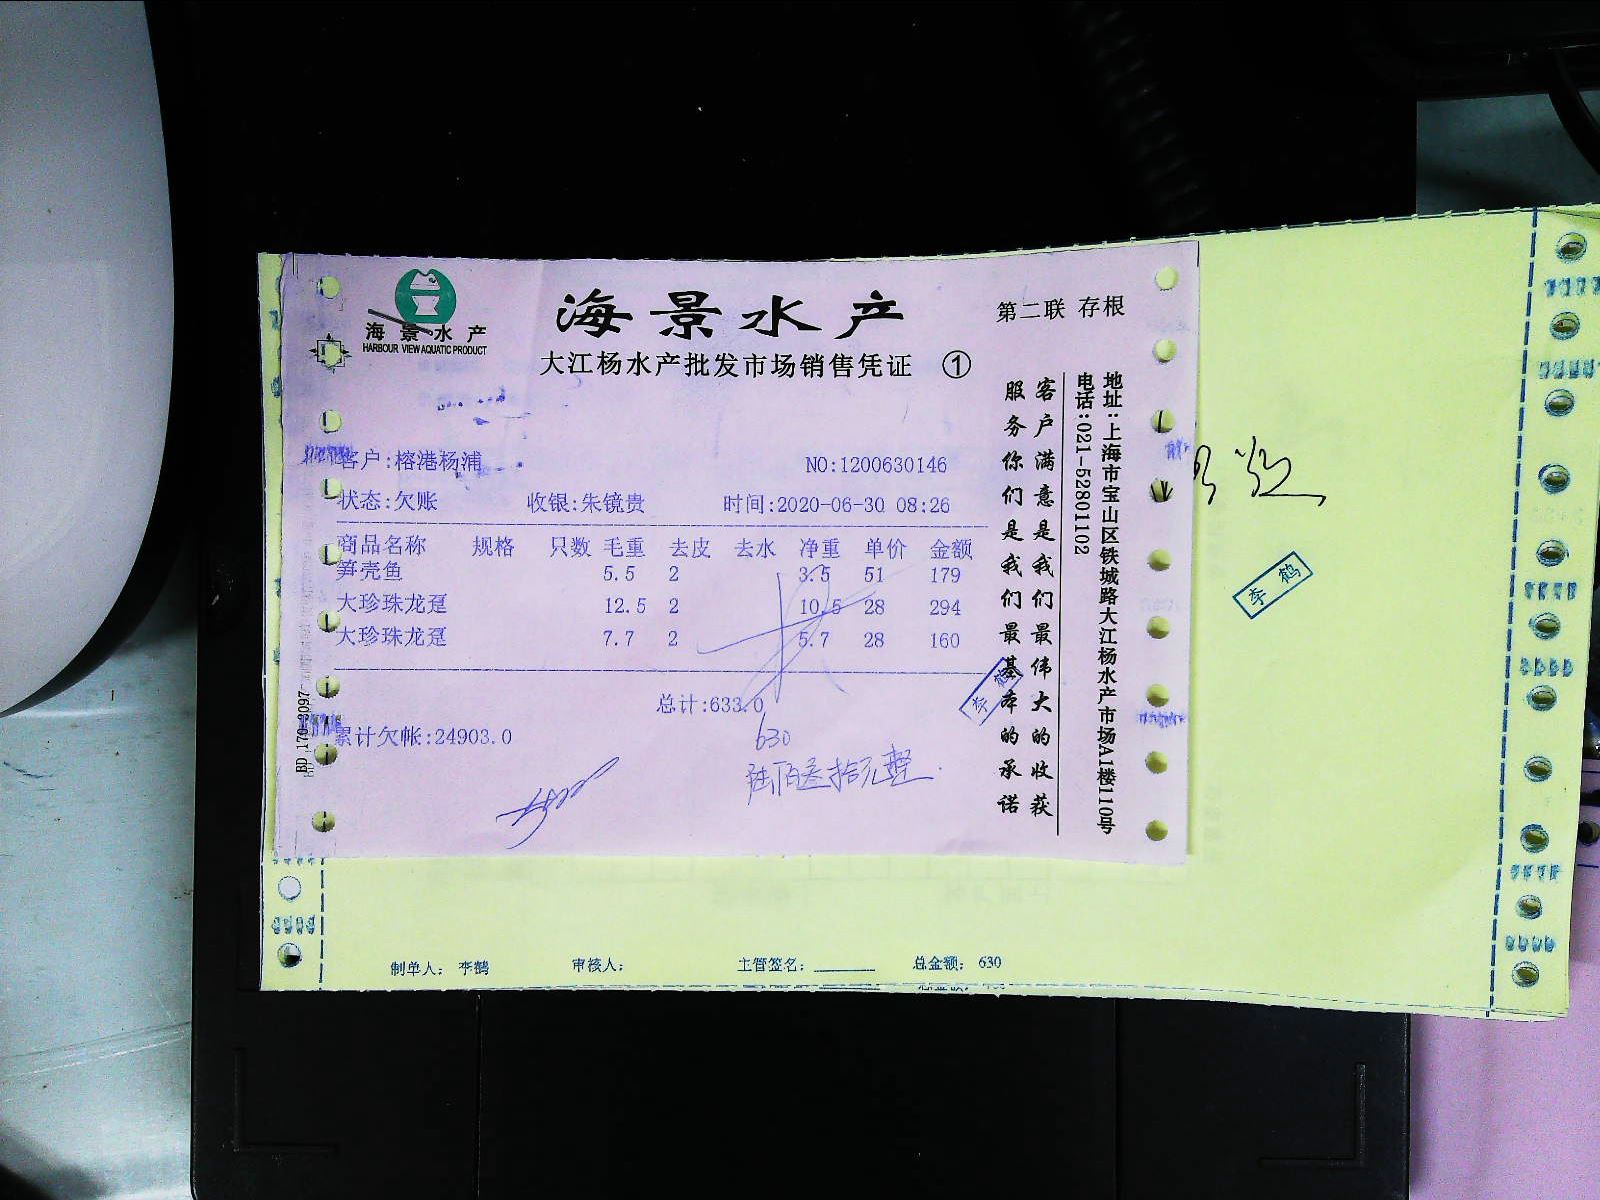 海景水产
HARBOUR VIEW AQUATIC PRODUCT
海景水产
第二联 存根
大江杨水产批发市场销售凭证 ①
客户:榕港杨浦
NO:1200630146
状态:欠账 收银:朱镜贵 时间:2020-06-30 08:26
商品名称 规格 只数 毛重 去皮 去水 净重 单价 金额
笋壳鱼 5.5 2 3.5 51 179
大珍珠龙趸 12.5 2 10.5 28 294
大珍珠龙趸 7.7 2 5.7 28 160
总计:633.0
累计欠帐:24903.0
630
陆佰叁拾元整
客户满意是我们最伟大的收获
服务你们是我们最基本的承诺
地址:上海市宝山区铁城路大江杨水产市场A1楼110号
电话:021-52801102
李鹤
李鹤
制单人: 李鹤 审核人: 主管签名: 总金额: 630